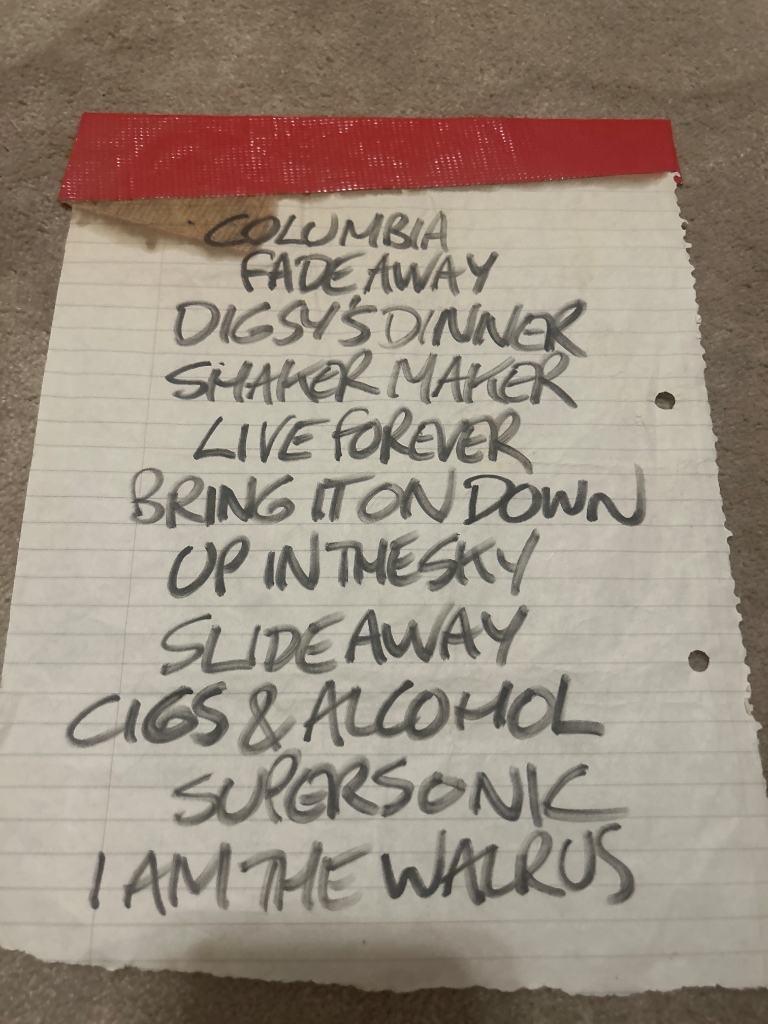 COLUMBIA
FADE AWAY
DIGSY'S DINNER
SHAKER MAKER
LIVE FOREVER
BRING IT ON DOWN
UP IN THE SKY
SLIDE AWAY
CIGS & ALCOHOL
SUPERSONIC
I AM THE WALRUS